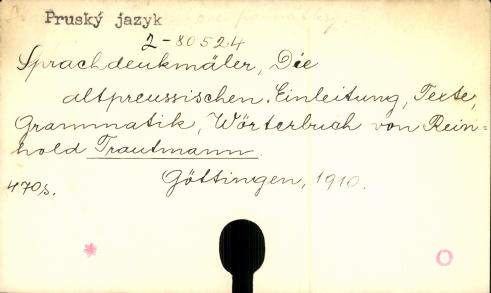 Pruský jazyk
2-80524
Sprachdenkmäler, Die
altpreussischen. Einleitung, Texte,
Grammatik, Wörterbuch von Rein-
hold Trautmann.
Göttingen, 1910.
470s.